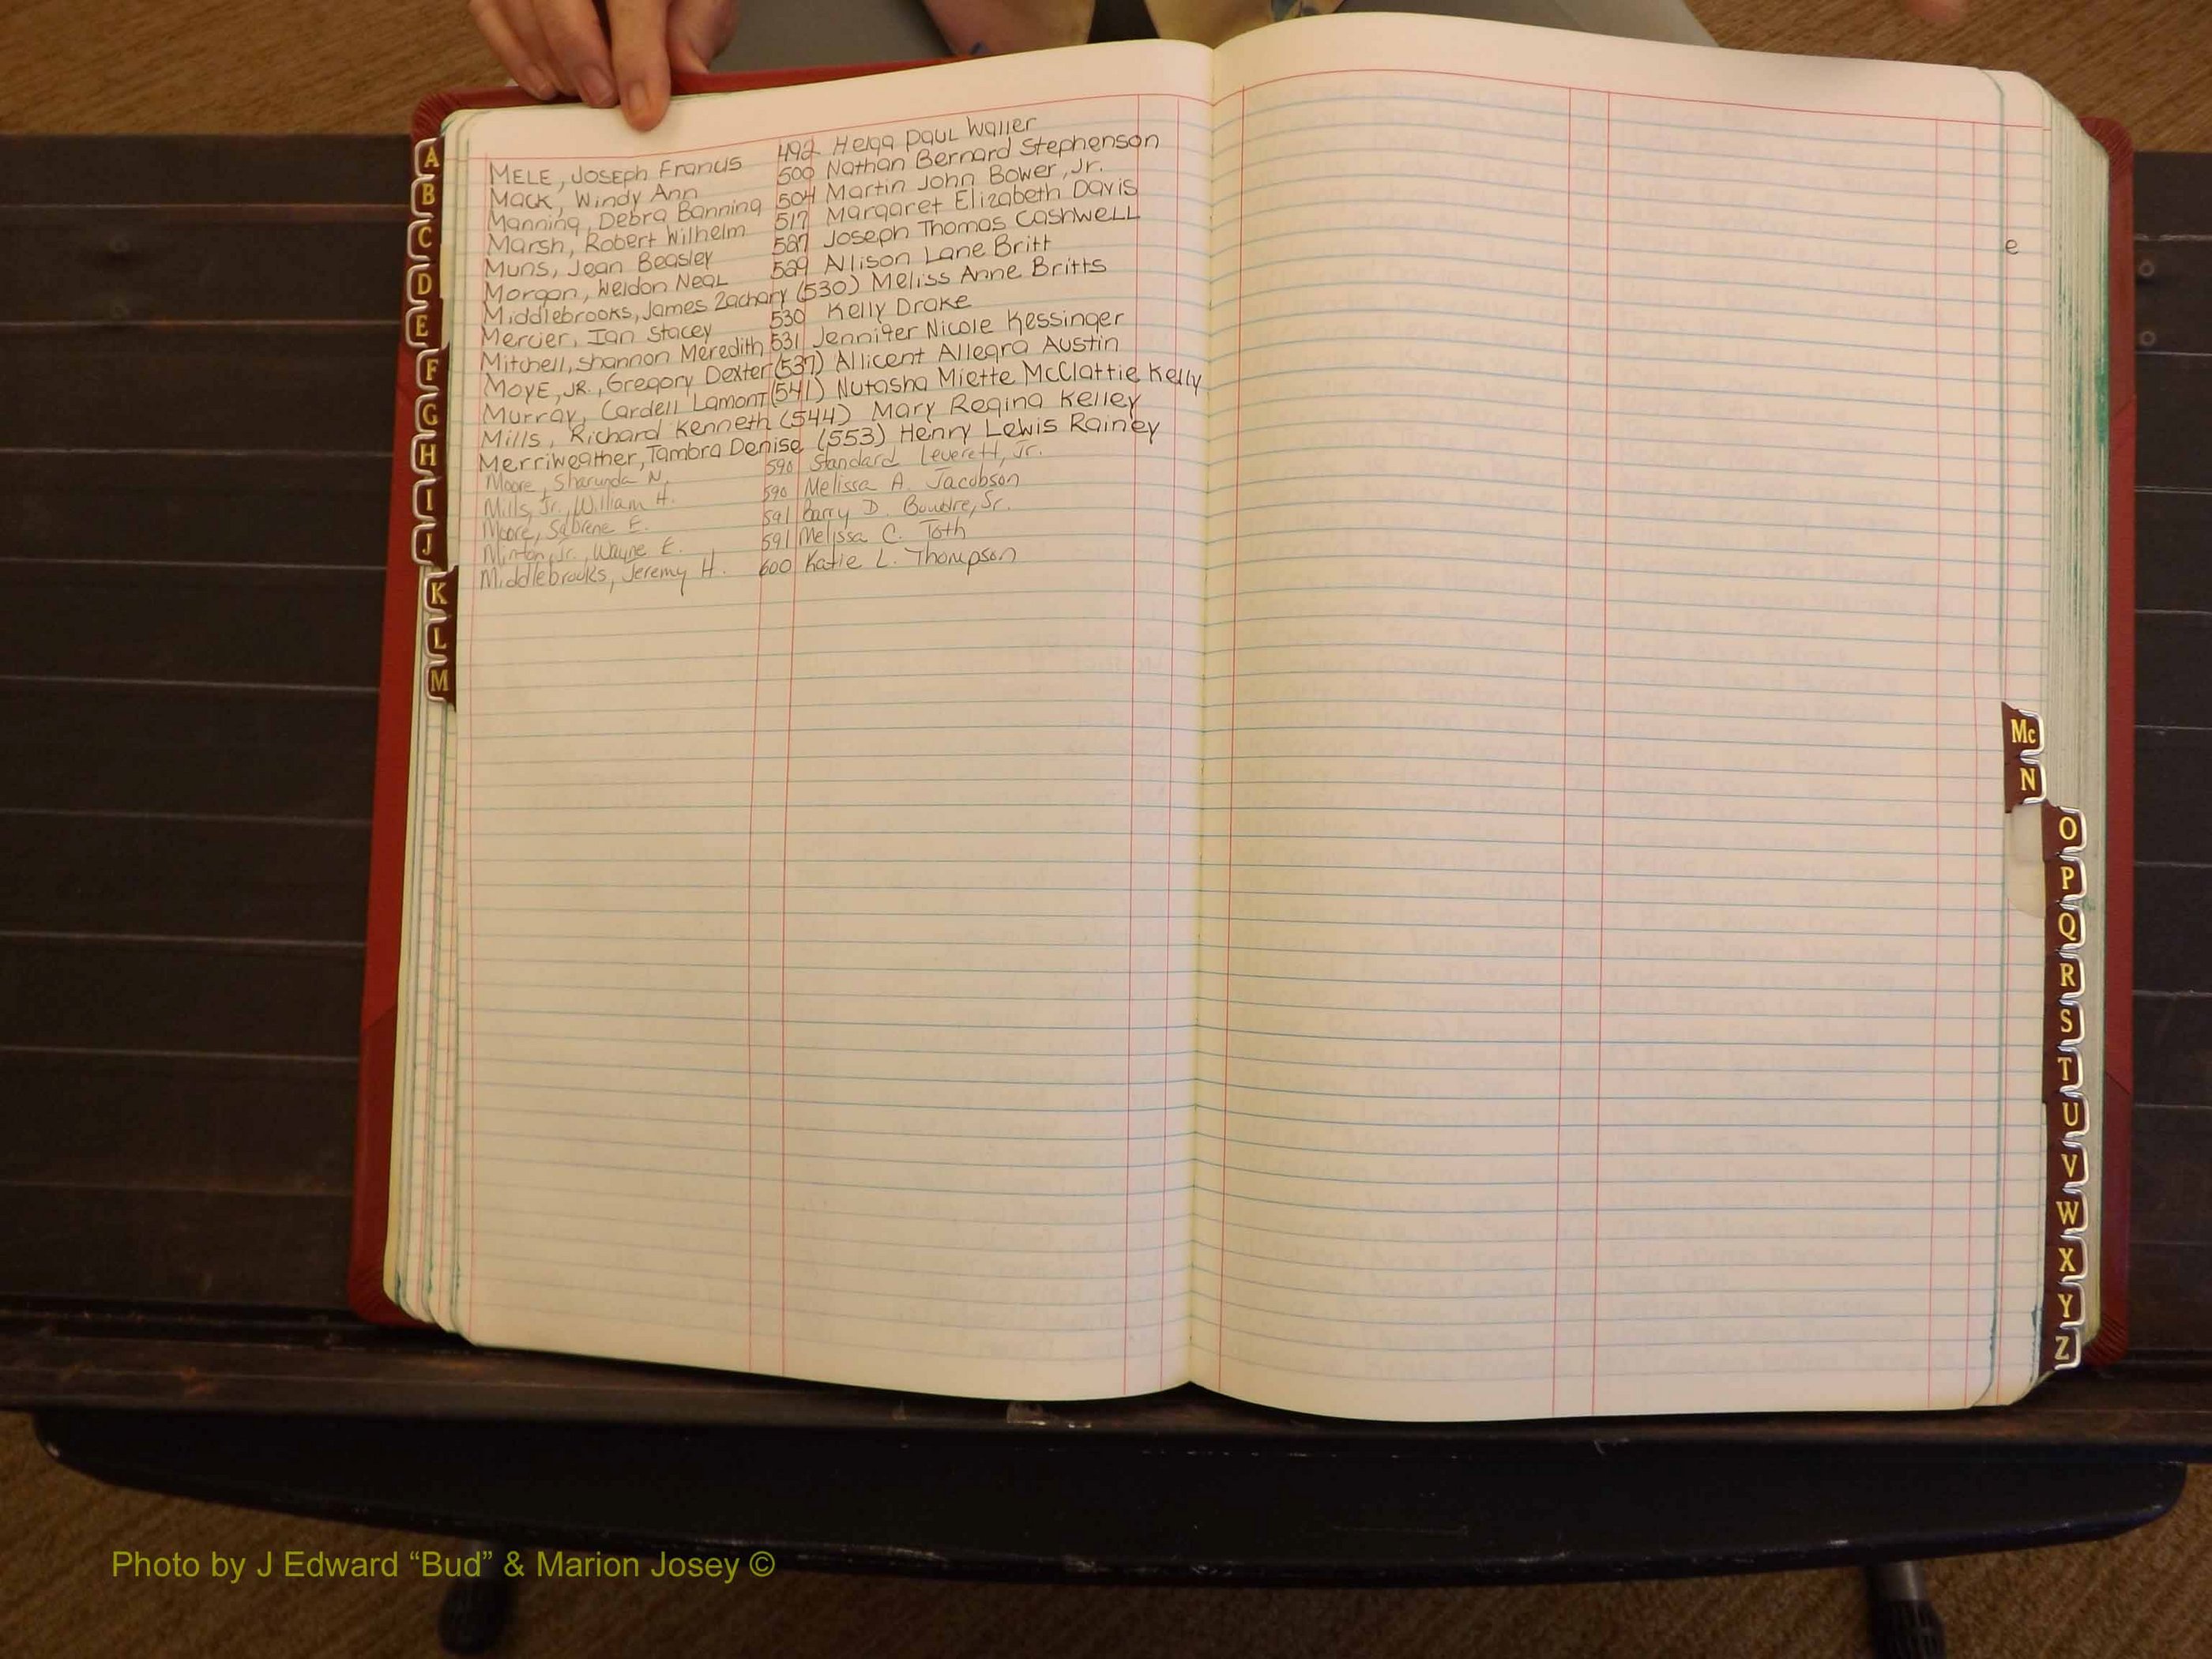 MELE, Joseph Francis 492 Helga Paul Waller
Mack, Windy Ann 500 Nathan Bernard Stephenson
Manning, Debra Banning 504 Martin John Bower, Jr.
Marsh, Robert Wilhelm 517 Margaret Elizabeth Davis
Muns, Jean Beasley 527 Joseph Thomas Cashwell
Morgan, Weldon Neal 529 Allison Lane Britt
Middlebrooks, James Zachary (530) Meliss Anne Britts
Mercier, Ian Stacey 530 Kelly Drake
Mitchell, Shannon Meredith 531 Jennifer Nicole Kessinger
MOYE, JR., Gregory Dexter (537) Allicent Allegra Austin
Murray, Cardell Lamont (541) Nutasha Miette McClattie Kelly
Mills, Richard Kenneth (544) Mary Regina Kelley
Merriweather, Tambra Denise (553) Henry Lewis Rainey
Moore, Sharunda N. 590 Standard Leverett, Jr.
Mills, Jr., William H. 590 Melissa A. Jacobson
Moore, Sabrene E. 591 Barry D. Sr.
Minton, Jr., Wayne E. 591 Melissa C. Toth
Middlebrooks, Jeremy H. 600 Katie L. Thompson
e
A
B
C
D
E
F
G
H
I
J
K
L
M
Mc
N
O
P
Q
R
S
T
U
V
W
X
Y
Z
Photo by J Edward “Bud” & Marion Josey ©